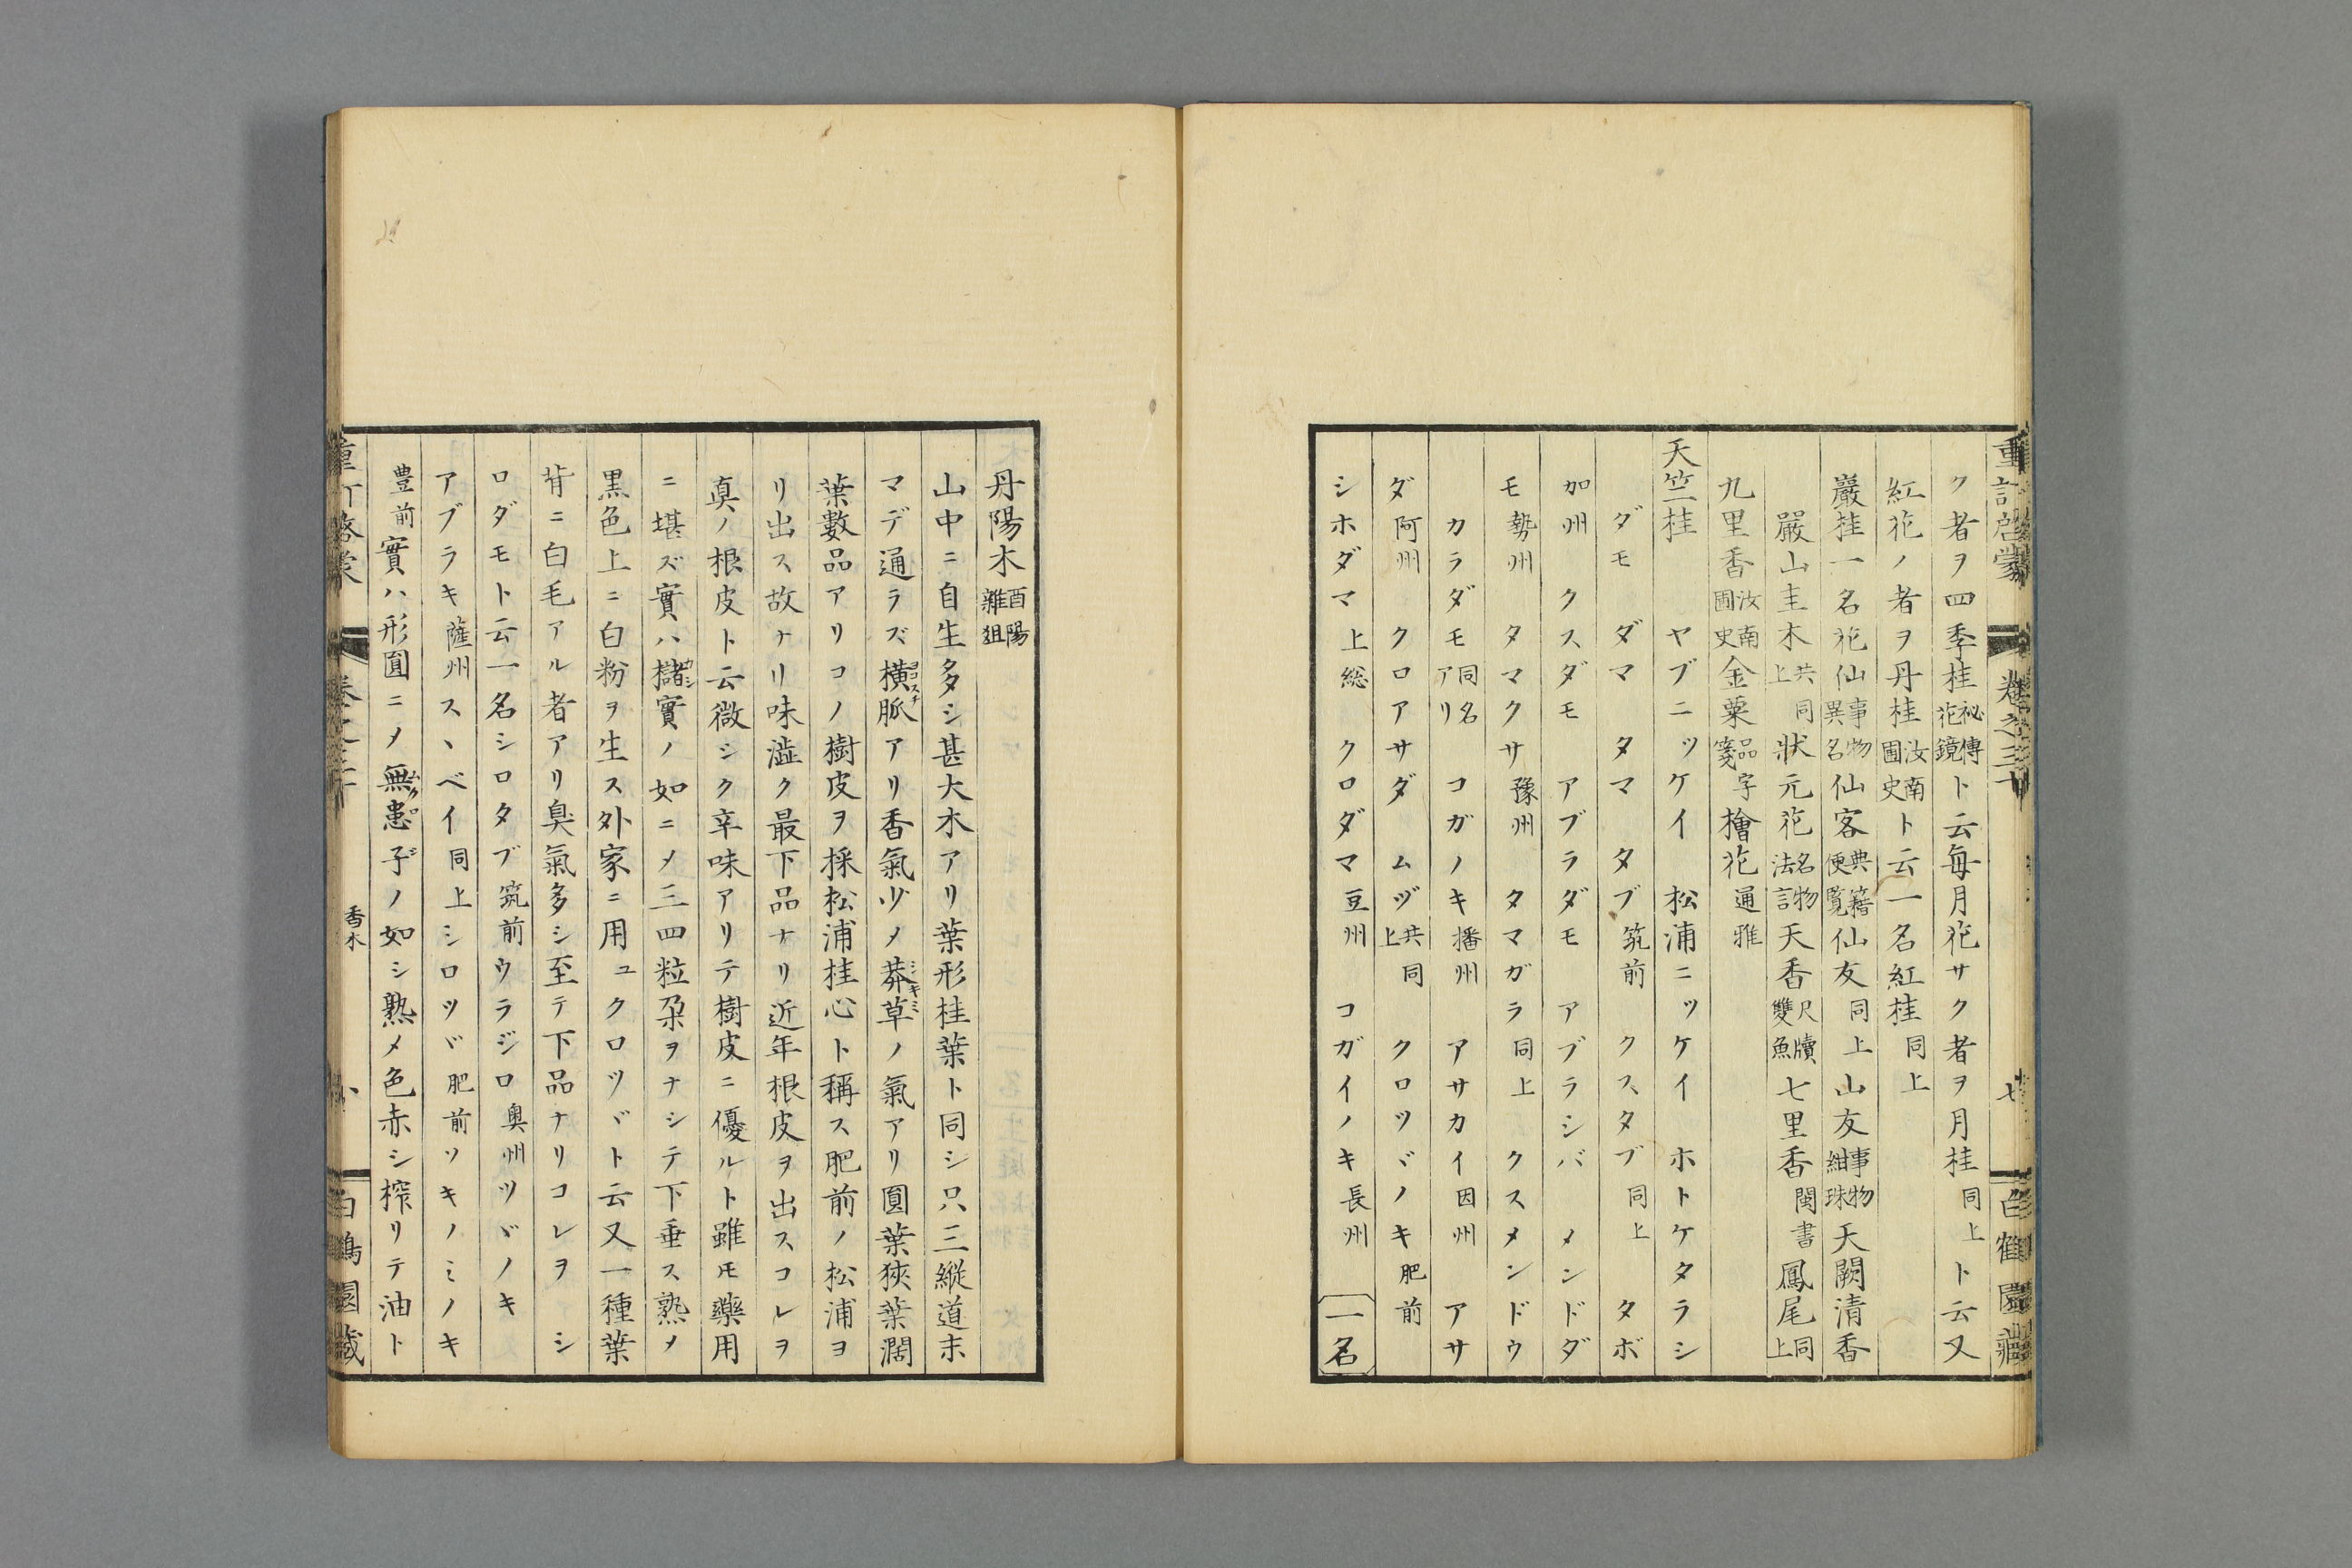 重訂啓蒙 卷之三十 七 白鶴園藏
ク者ヲ四季桂祕傳花鏡ト云每月花サク者ヲ月桂同上ト云又
紅花ノ者ヲ丹桂汝南圃史ト云一名紅桂同上
巖桂一名花仙事物異名仙客典籍便覧仙友同上山友事物紺珠天闕清香
嚴山圭木共同上狀元花名物法言天香尺牘雙魚七里香閩書鳳尾同上
九里香汝南圃史金粟品字箋檜花通雅
天竺桂 ヤブニツケイ 松浦ニツケイ ホトケタラシ
ダモ ダマ タマ タブ筑前 クスタブ同上 タボ
加州 クスダモ アブラダモ アブラシバ メンドダ
モ勢州 タマクサ豫州 タマガラ同上 クスメンドウ
カラダモ同名アリ コガノキ播州 アサカイ因州 アサ
ダ阿州 クロアサダ ムヅ共同上 クロツヾノキ肥前
シホダマ上総 クロダマ豆州 コガイノキ長州 一名
丹陽木酉陽雜狙
山中ニ自生多シ甚大木アリ葉形桂葉ト同シ只三縱道末
マデ通ラズ橫脈ヨコスチアリ香氣少メ莽草シキミノ氣アリ圓葉狹葉濶
葉數品アリコノ樹皮ヲ採松浦桂心ト稱ス肥前ノ松浦ヨ
リ出ス故ナリ味澁ク最下品ナリ近年根皮ヲ出スコレヲ
眞ノ根皮ト云微シク辛味アリテ樹皮ニ優ルト雖モ藥用
ニ堪ズ實ハ櫧カシ實ノ如ニメ三四粒朶ヲナシテ下垂ス熟メ
黒色上ニ白粉ヲ生ス外家ニ用ユクロツヾト云又一種葉
背ニ白毛アル者アリ臭氣多シ至テ下品ナリコレヲ シ
ロダモト云一名シロタブ筑前ウラジロ奥州ツヾノキ
アブラキ薩州スヽベイ同上シロツヾ肥前ツキノミノキ
豊前實ハ形圓ニメ無患子ムクロジノ如シ熟メ色赤シ搾リテ油ト
香木